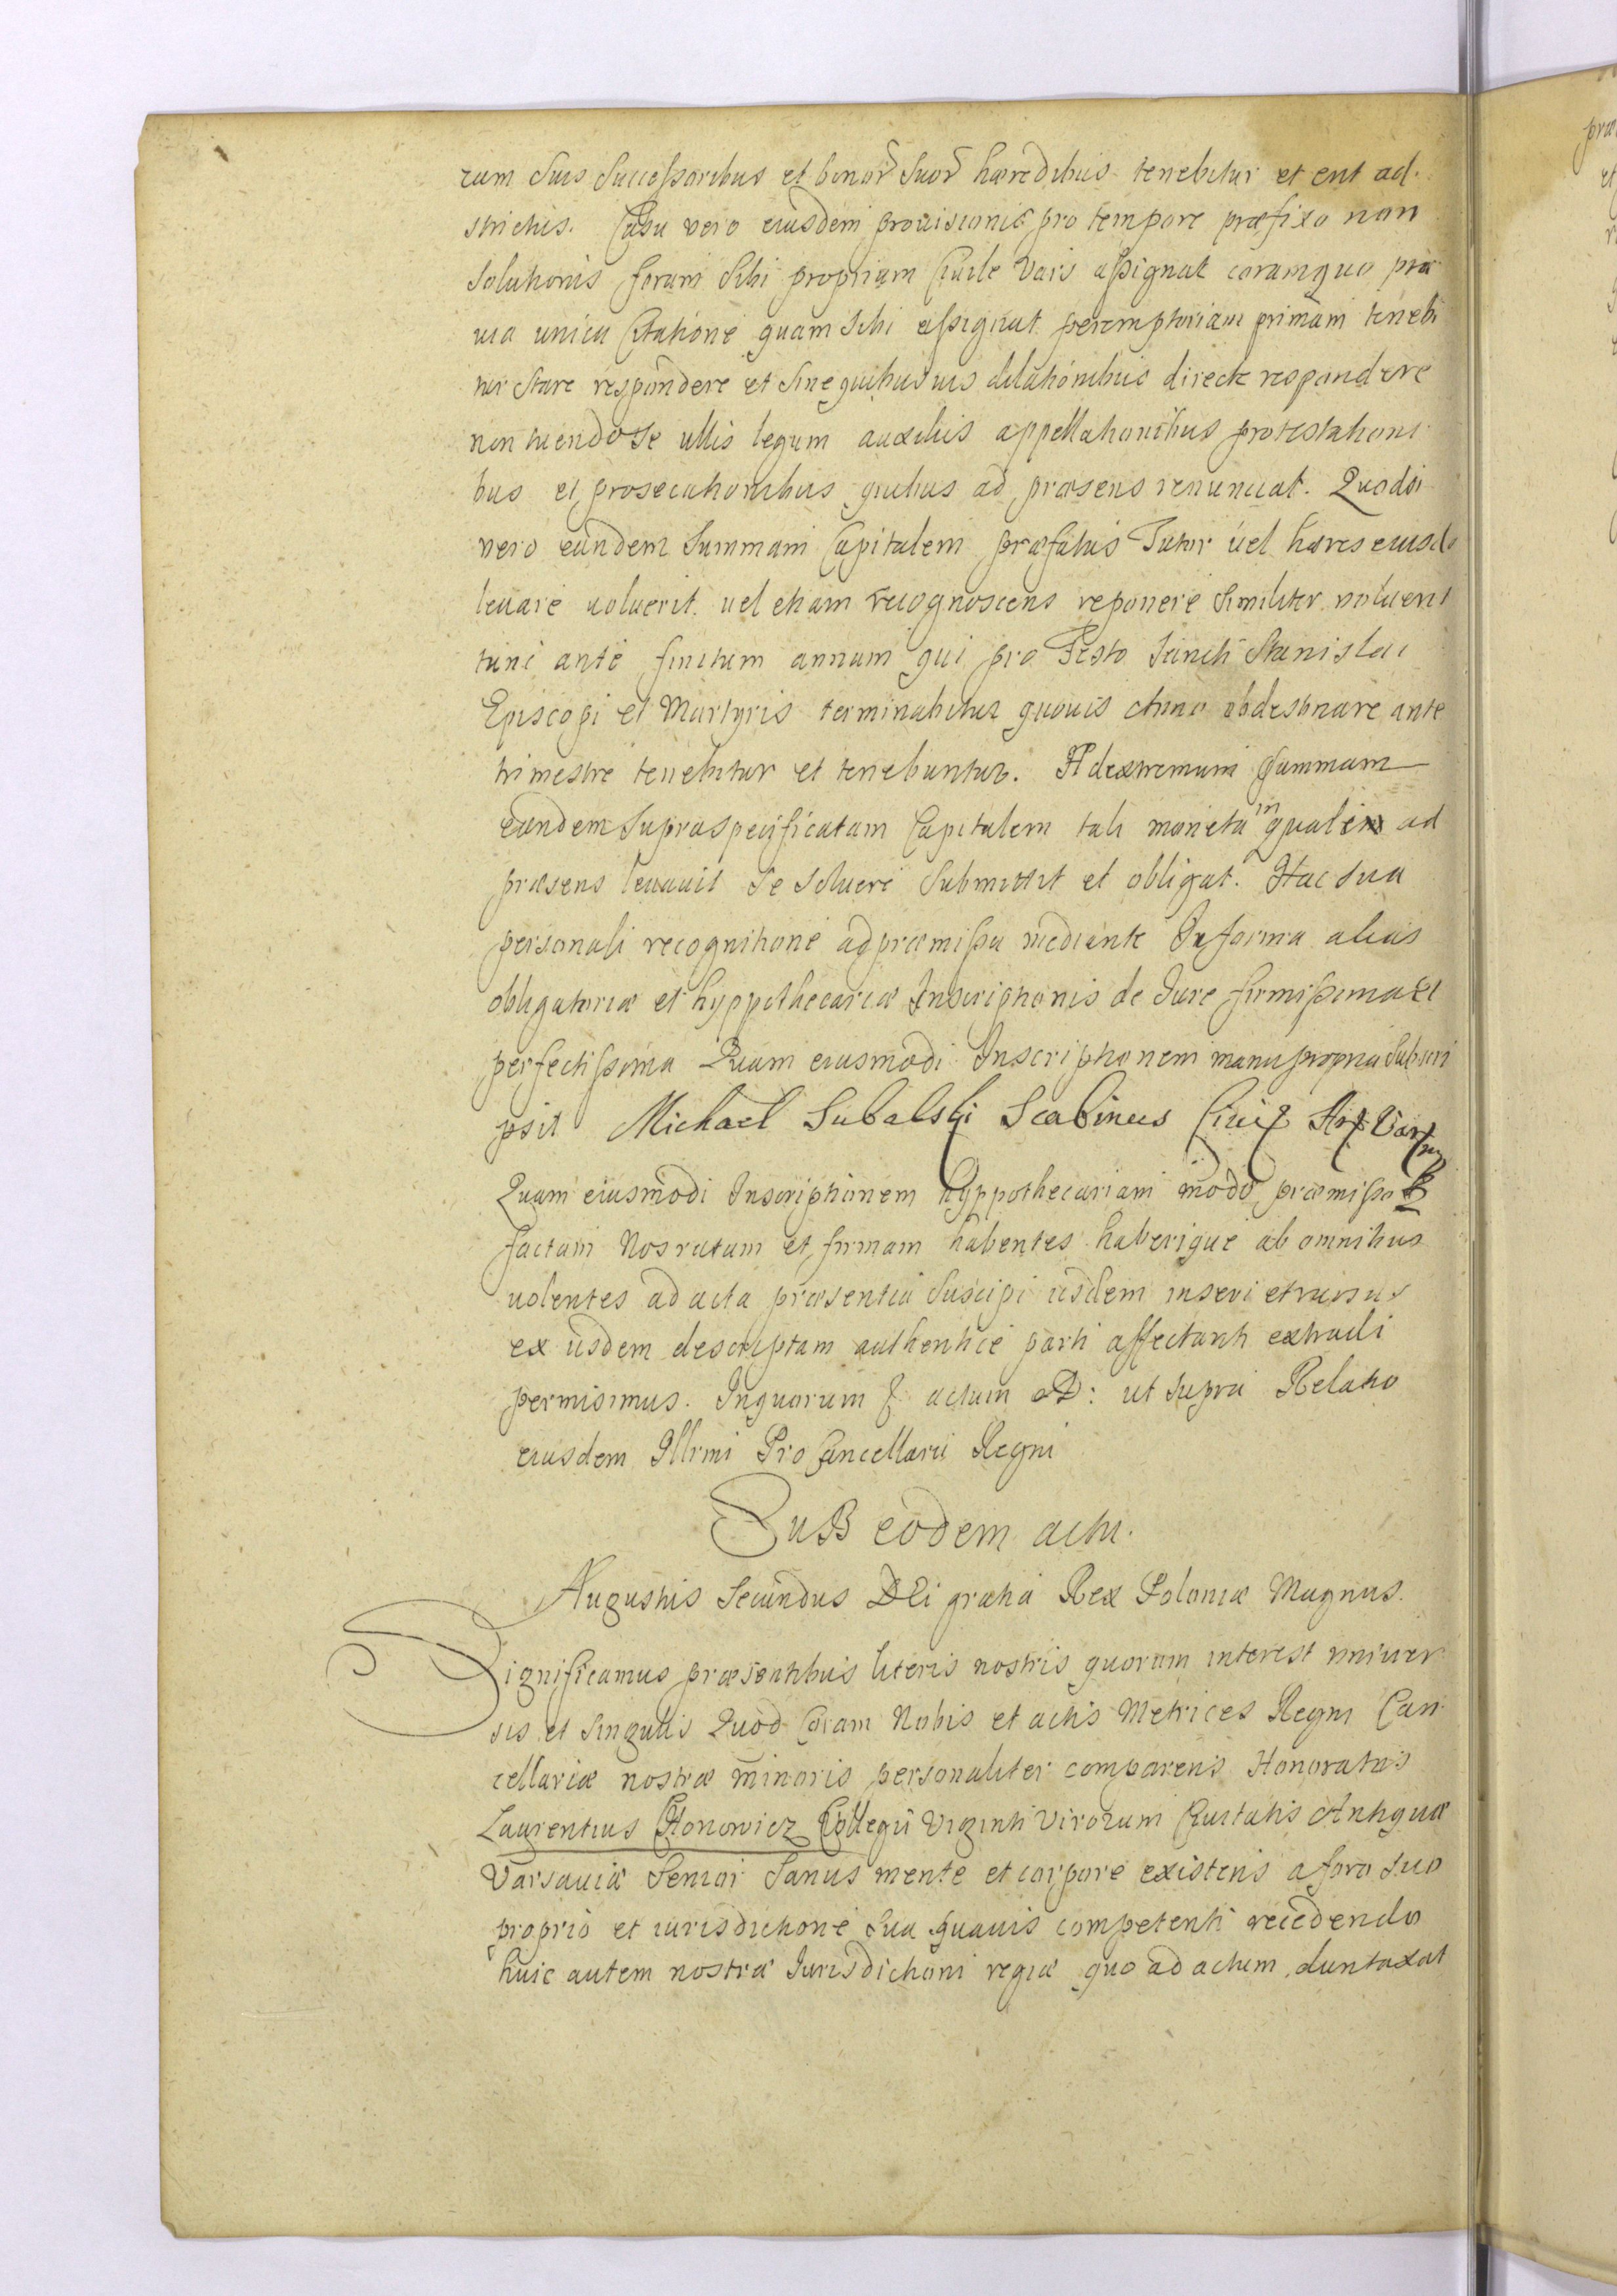 rum suis successoribus et bonor suor hæredibus tenebitur et erit ad
strictus. Casu vero eiusdem prouisionis pro tempore præfixo non
solutionis forum sibi proprium Ciuile Vars assignat coramquo præ
uia unica Citatione quam sibi assignat peremptoriam primam tenebi
tur stare respondere et sine quibusuis dilationibus directe respondere
non tuendo se ullis legum auxiliis appellationibus protestationi
bus et prosecutionibus quibus ad præsens renunciat. Quodsi
vero eandem summam Capitalem præfatus Tutor uel hæres eiusd
leuare uoluerit uel etiam recognoscens reponere similiter uoluerit
tunc ante finitum annum qui pro Festo Sancti Stanislai
Episcopi et Martyris terminabitur quouis Anno obdestinare ante
trimestre tenebitur et tenebuntur. Ad extremum summam
eandem supraspecificatam Capitalem tali moneta in quali ad
præsens leuauit se soluere submittit et obligat. Hac sua
personali recognitione ad præmissa mediante In forma alias
obligatoriæ et hyppothecariæ Inscriptionis de Iure firmissima et
perfectissima Quam eiusmodi Inscriptionem manu propria subscri
psit Michael Subalski Scabinus Ciuit Ant Vars mp
Quam eiusmodi Inscriptionem hyppothecariam modo præmisso
factam Nos ratam et firmam habentes haberique ab omnibus
uolentes ad acta præsentia suscipi iisdem inseri et rursus
ex iisdem descriptam authentice parti affectanti extradi
permisimus. In quorum f. actum AD: ut supra Relatio
eiusdem Illrmi Pro Cancellarii Regni
SuB eodem actu.
Augustus Secundus DEi gratia Rex Poloniæ Magnus.
Significamus præsentibus literis nostris quorum interest vniuer
sis et singulis Quod Coram Nobis et actis Metrices Regni Can
cellariæ nostræ minoris personaliter comparens Honoratus
Laurentius Ctonowicz Collegii Viginti Virorum Ciuitatis Antiquæ
Varsauiæ Senior sanus mente et corpore existens a foro suo
proprio et iurisdictione sua quauis competenti recedendo
huic autem nostræ Iurisdictioni regiæ quo ad actum duntaxat